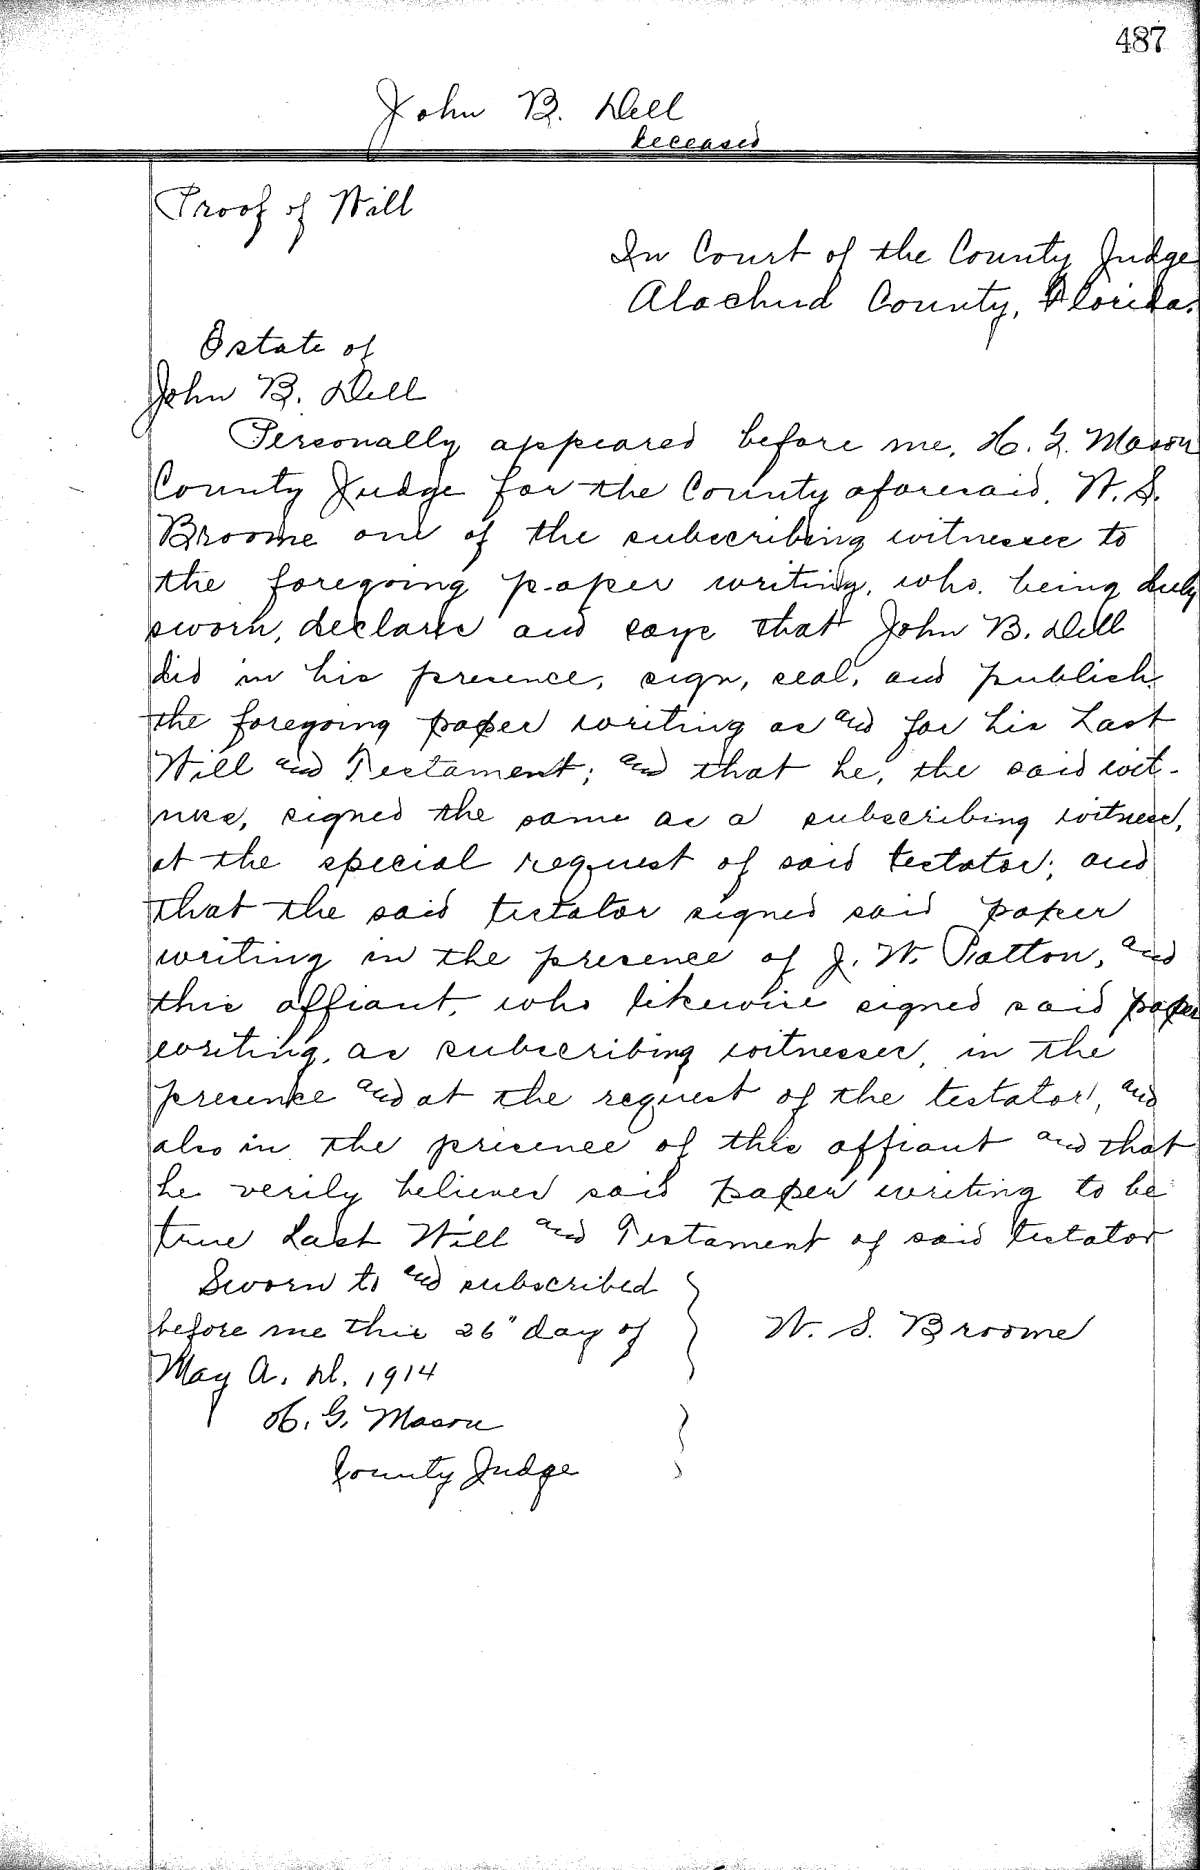 487
John B. Dell
Deceased
Proof of Will
In Court of the County Judge
Alachua County, Florida.
Estate of
John B. Dell
Personally appeared before me, H. G. Mason
County Judge for the County aforesaid, W. S.
Broome one of the subscribing witnesses to
the foregoing paper writing, who, being duly
sworn, declares and says that John B. Dell
did in his presence, sign, seal, and publish
the foregoing paper writing as and for his Last
Will and Testament; and that he, the said wit-
ness, signed the same as a subscribing witness,
at the special request of said testator; and
that the said testator signed said paper
writing in the presence of J. W. Patton, and
this affiant, who likewise signed said paper
writing, as subscribing witnesses, in the
presence and at the request of the testator, and
also in the presence of this affiant and that
he verily believes said paper writing to be
true Last Will and Testament of said testator
Sworn to and subscribed
before me this 26" day of
W. S. Broome
May A. D. 1914
H. G. Mason
County Judge